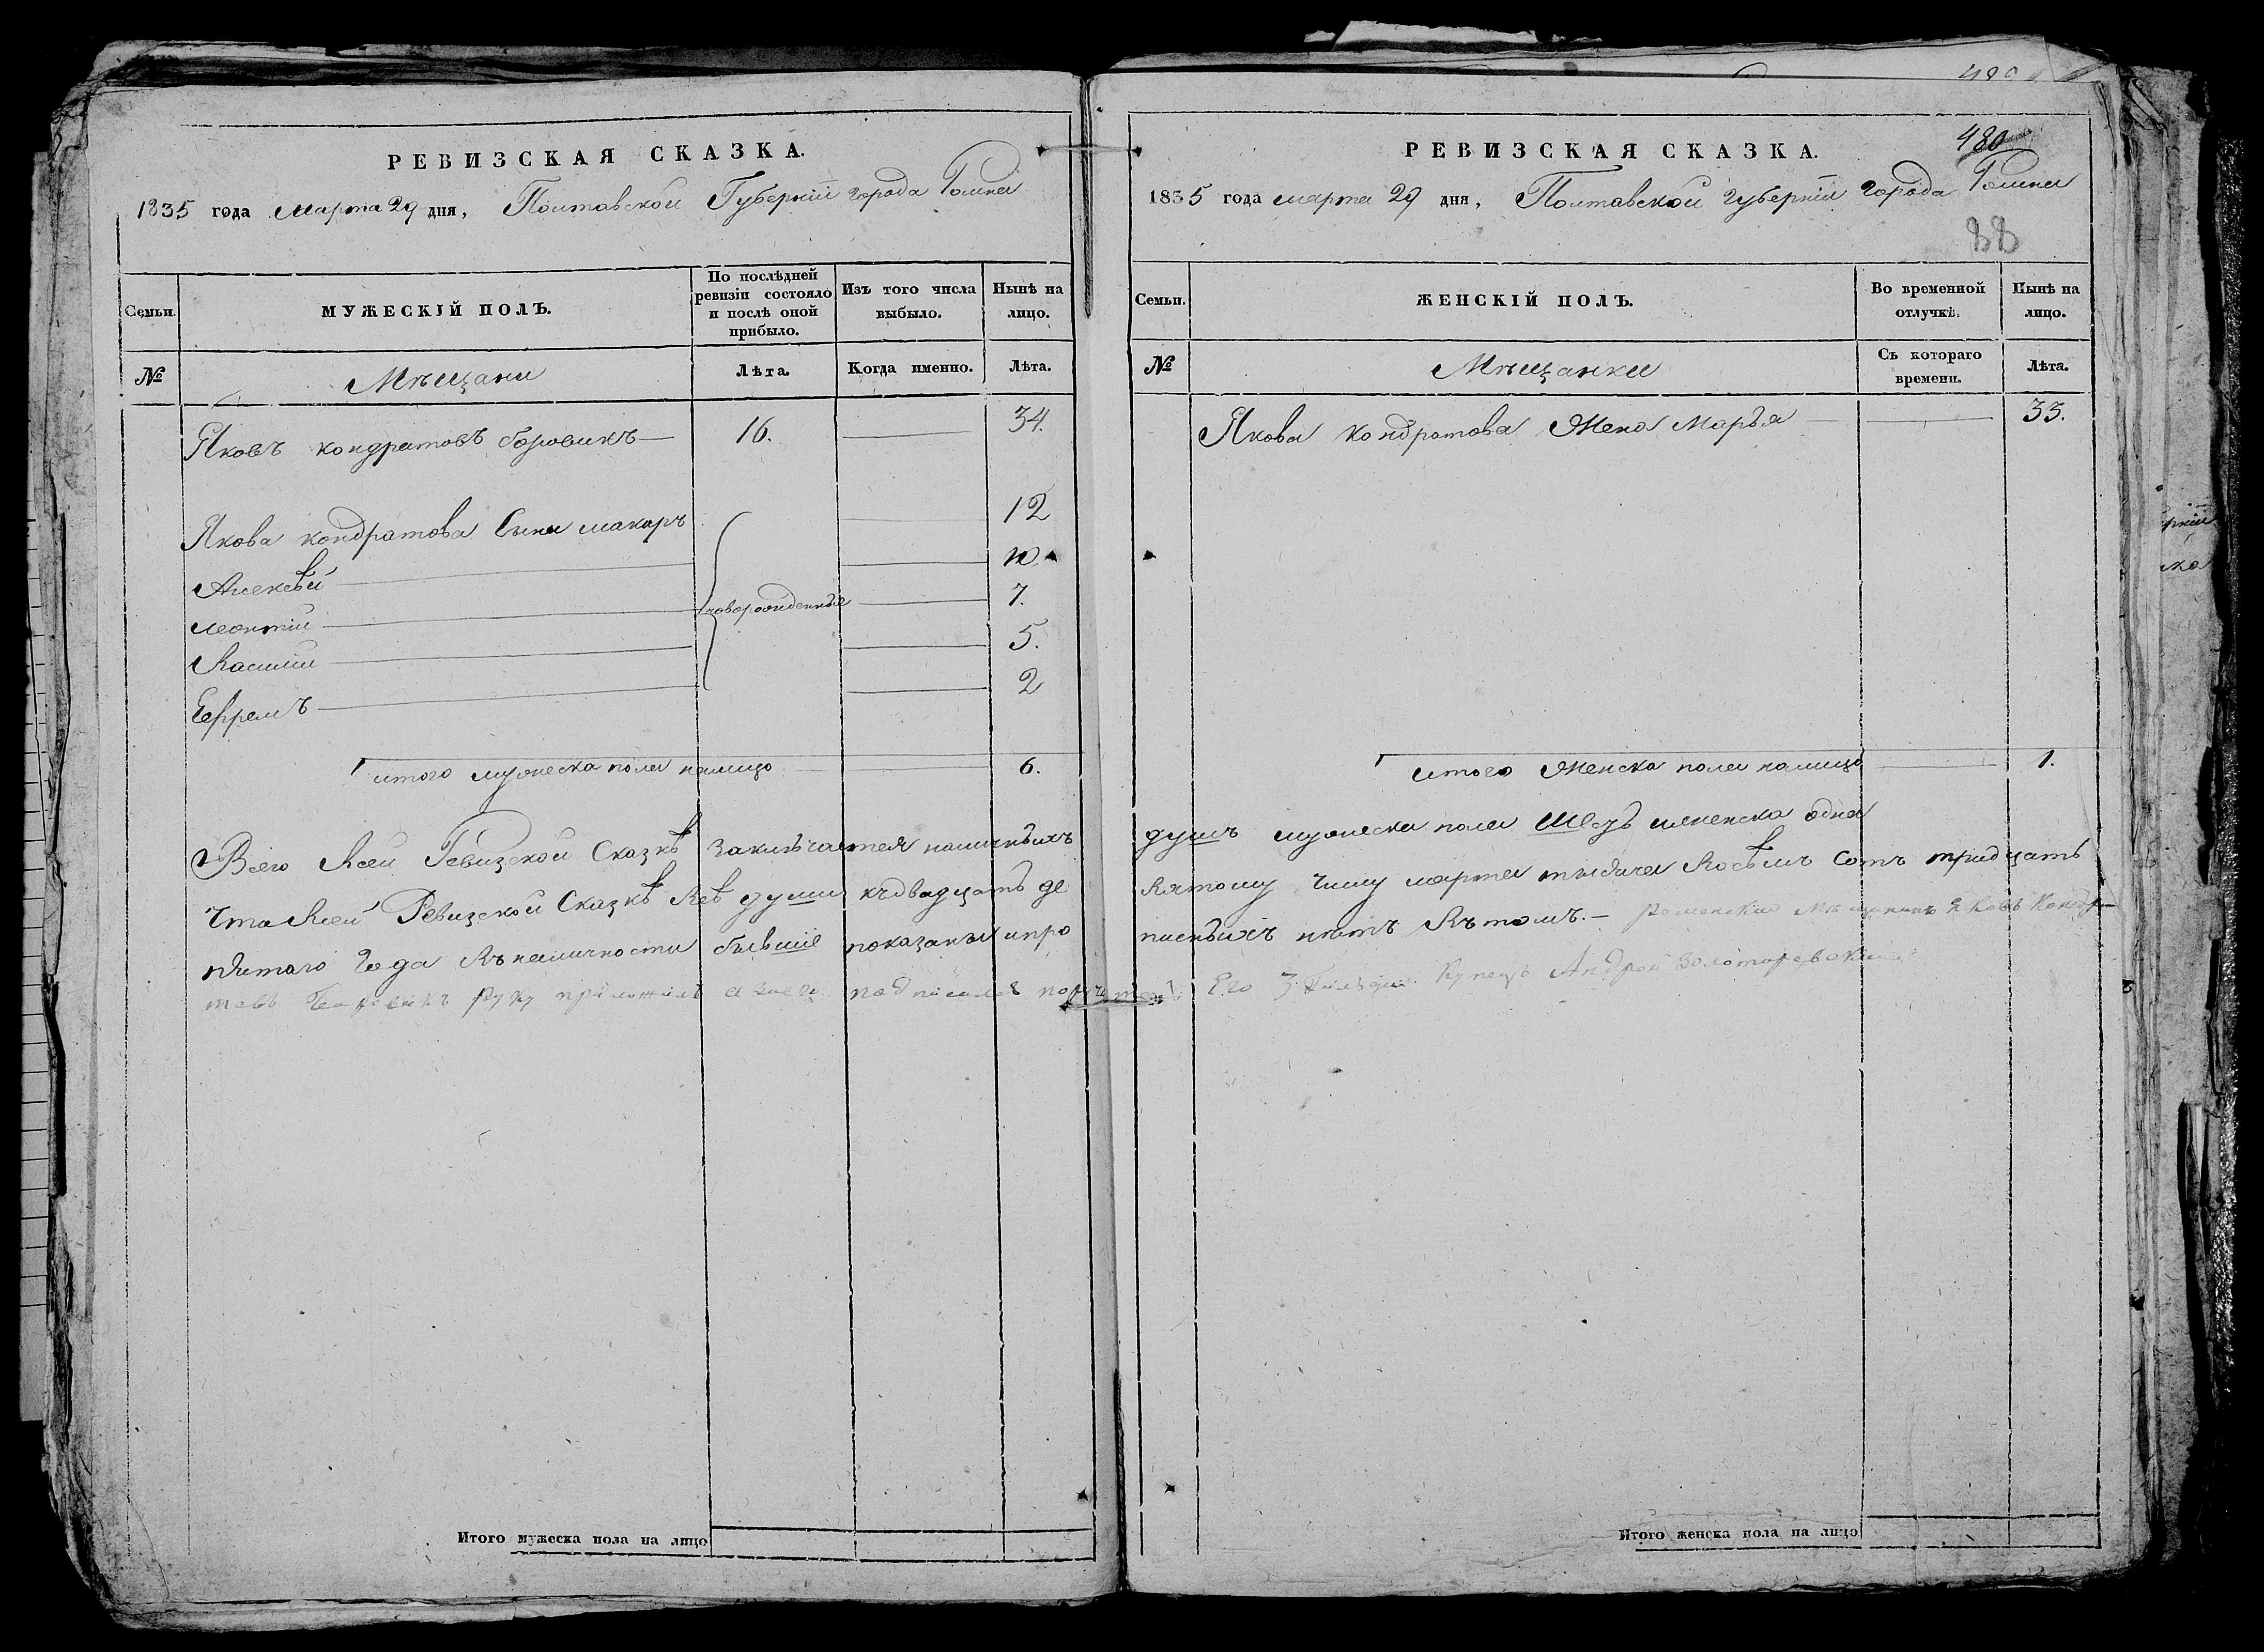 РЕВИЗСКАЯ СКАЗКА.
1835 года Марта 29 дня, Полтавской Губернии города Ромна
Семьи.
МУЖЕСКІЙ ПОЛЪ.
По послѣдней ревизіи состояло и послѣ оной прибыло.
Изъ того числа выбыло.
Нынѣ на лицо.
№
Мѣщани
Лѣта.
Когда именно.
Лѣта.
Яковъ кондратовъ боровикъ 16. 34.
Якова кондратова Сыни макаръ 12
Алексѣй 10.
леонтій новорожденные 7.
Василій 5.
Ефремъ 2
итого мужеска пола налицо 6.
Всего Всей Ревизской Сказкѣ Заключается наличныхъ
Что Всей Ревизской Сказкѣ Всѣ души къ двадцать де
пятаго Года Въ наличности бывшіе показаны и про
товъ боровикъ руку приложилъ а подписался
РЕВИЗСКАЯ СКАЗКА.
480
1835 года марта 29 дня, Полтавской губерніи города Ромна
Семьи.
ЖЕНСКІЙ ПОЛЪ.
Во временной отлучкѣ.
Нынѣ на лицо.
№
Мѣщанки
Съ котораго времени.
Лѣта.
Якова Кондратова Жена Марья 33.
итого Женска пола налицо 1.
душъ мужеска пола шесть женска одна
вятому числу марта тысяча Восѣмъ Сотъ тридцать
писныхъ нѣтъ Въ томъ. — роменский мѣщанинъ Яковъ Кондра
Его 3 Гильдіи Купецъ Андрей Золотаревский
Итого мужеска пола на лицо
Итого женска пола на лицо